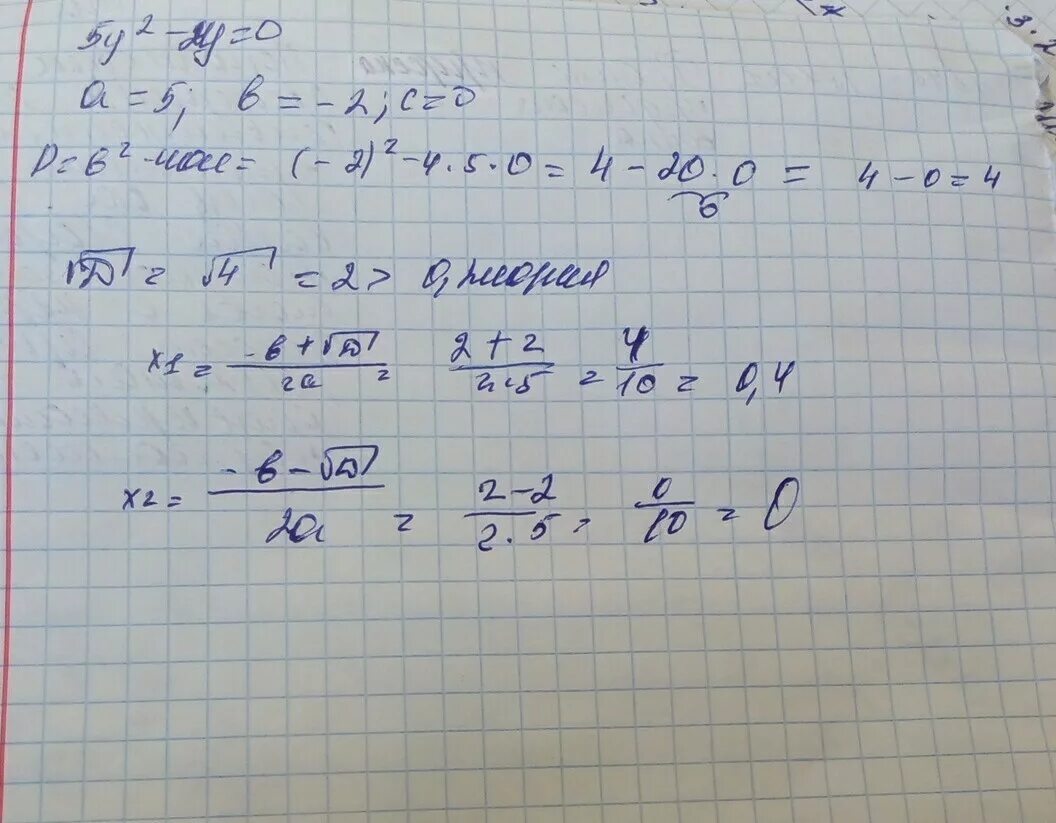 5y² - 2y = 0
a = 5; в = -2; c = 0
D = в² - 4ac = (-2)² - 4·5·0 = 4 - 20·0 = 4 - 0 = 4
0
√D = √4 = 2 > 0, 2 корня
x1 = -в + √D / 2a = 2 + 2 / 2·5 = 4 / 10 = 0,4
x2 = -в - √D / 2a = 2 - 2 / 2·5 = 0 / 10 = 0